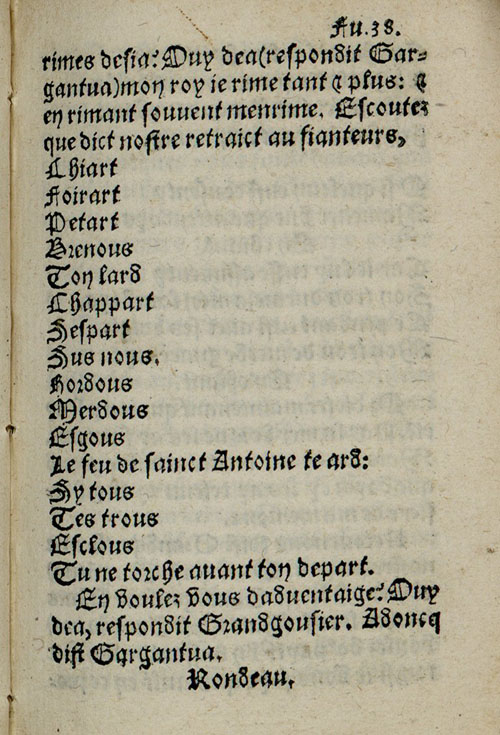 Fu.38.
rimes desia? Ouy dea(respondit Gar-
gantua)mon roy ie rime tant ⁊ plus: ⁊
en rimant souvent menrime. Escoutez
que dict nostre retraict au fianteurs,
Chiart
Foirart
Petart
Brenous
Ton lard
Chappart
Sespart
Sus nous,
Hordous
Merdous
Esgous
Le feu de sainct Antoine te ard:
Sy tous
Tes trous
Esclous
Tu ne torche avant ton depart.
En voulez vous dadventaige? Ouy
dea, respondit Grandgousier. Adoncq
dist Gargantua.
Rondeau,